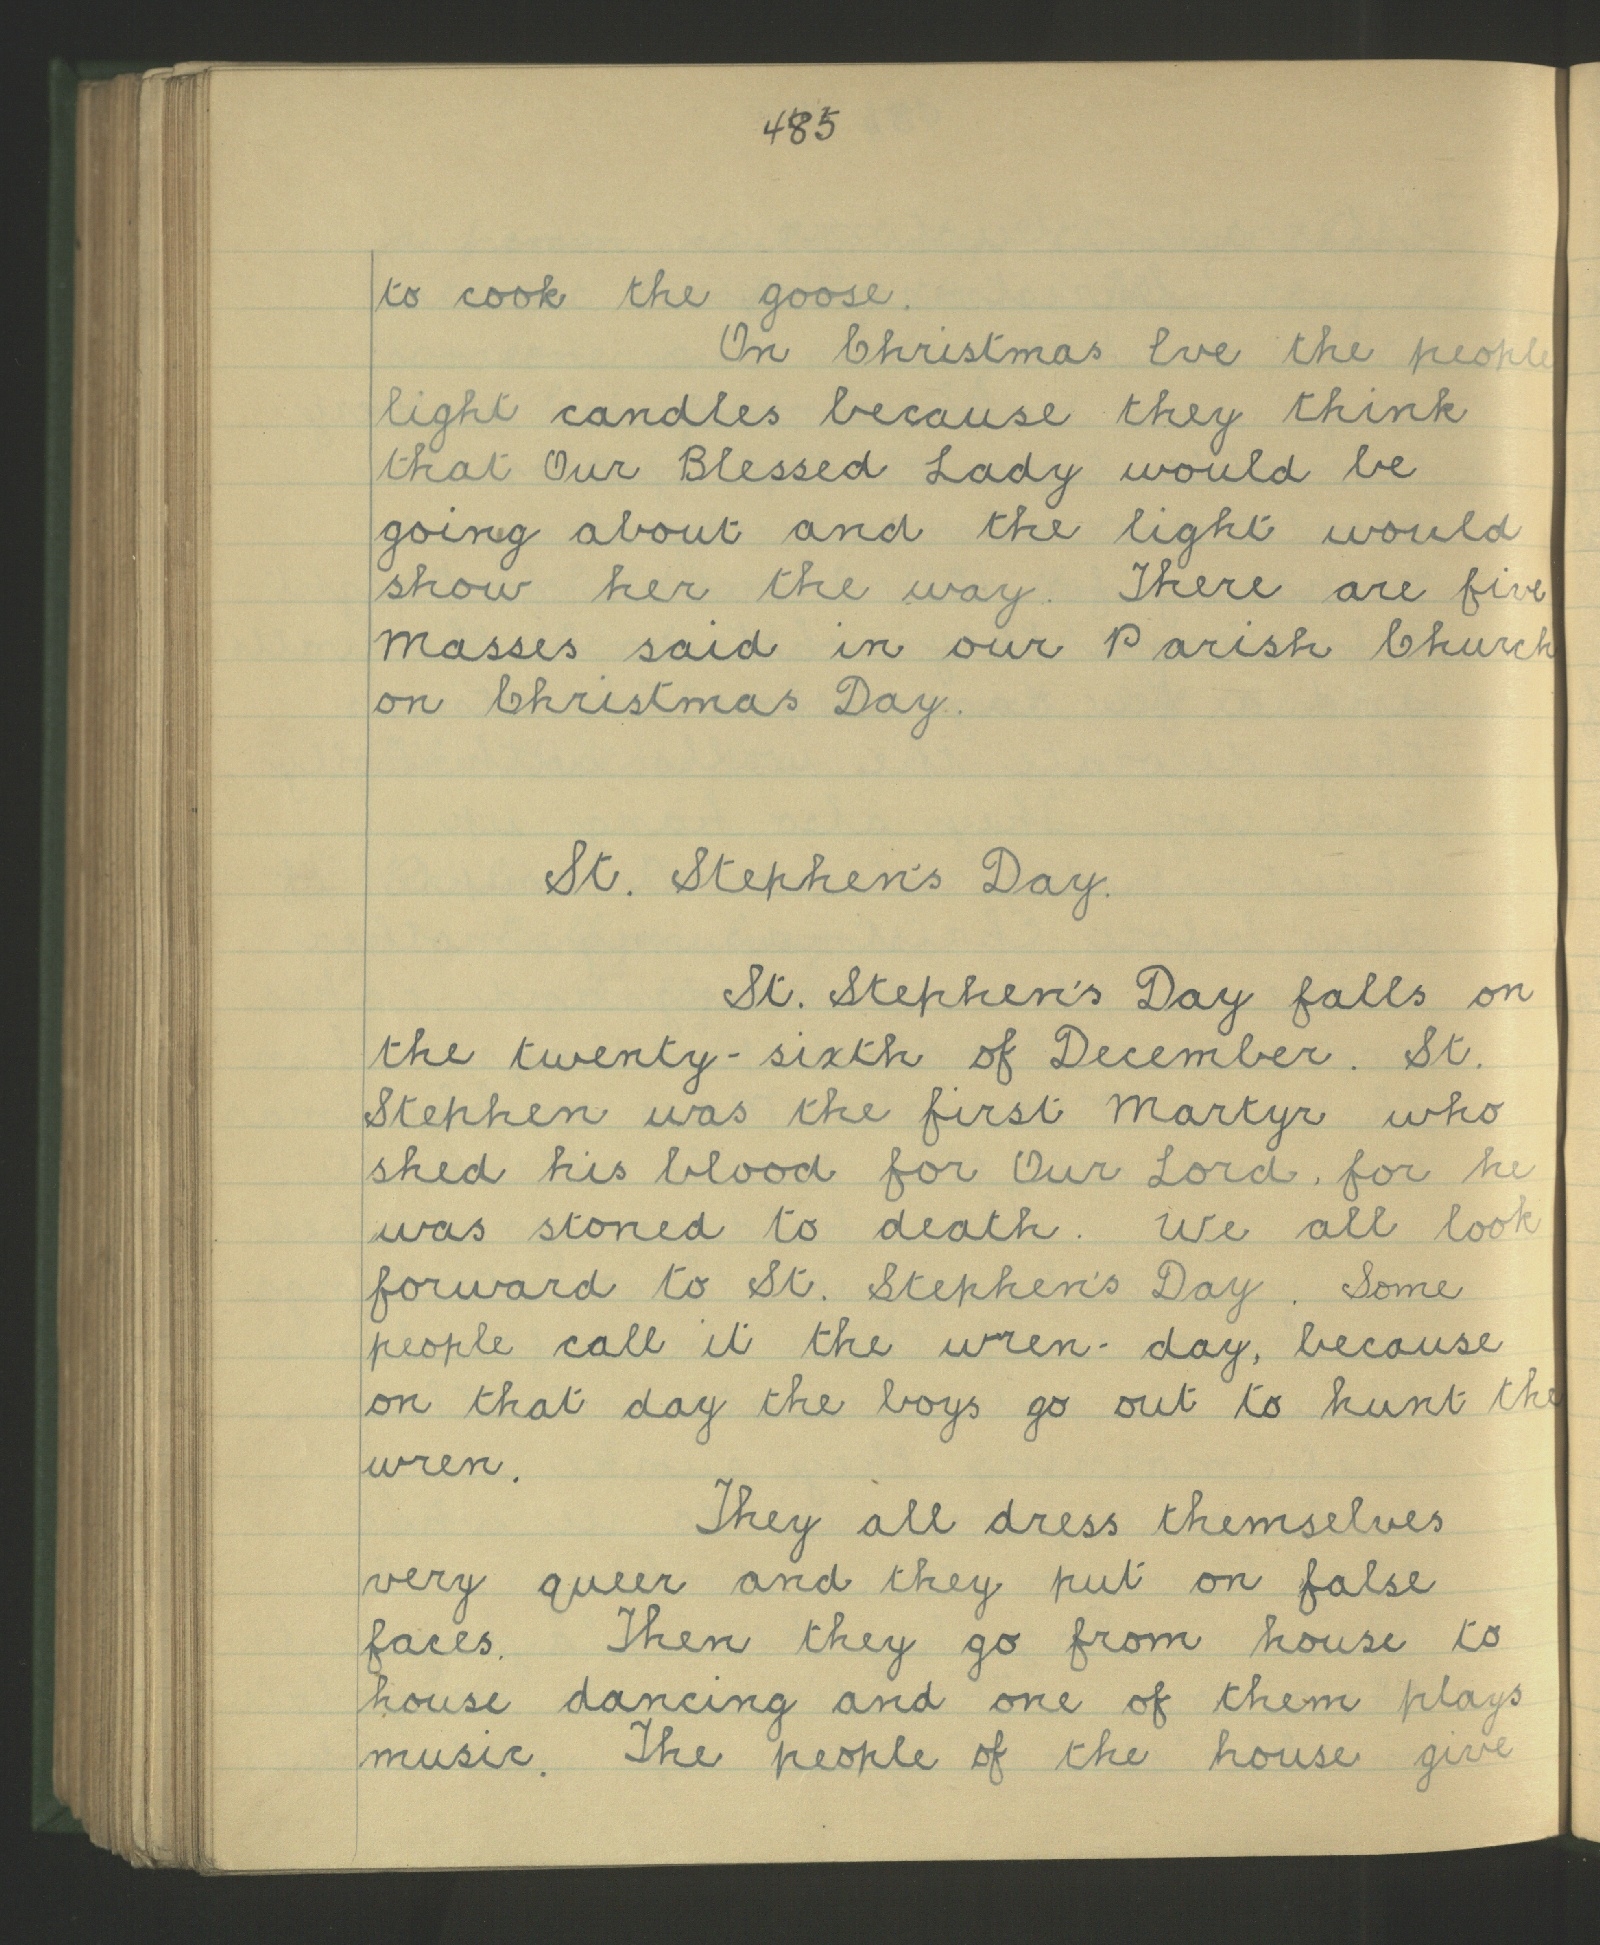 485
to cook the goose.
On Christmas Eve the people
light candles because they think
that Our Blessed Lady would be
going about and the light would
show her the way. There are five
Masses said in our Parish Church
on Christmas Day.
St. Stephen's Day.
St. Stephen's Day falls on
the twenty-sixth of December. St.
Stephen was the first Martyr who
shed his blood for Our Lord, for he
was stoned to death. We all look
forward to St. Stephen's Day. Some
people call it the wren-day, because
on that day the boys go out to hunt the
wren.
They all dress themselves
very queer and they put on false
faces. Then they go from house to
house dancing and one of them plays
music. The people of the house give